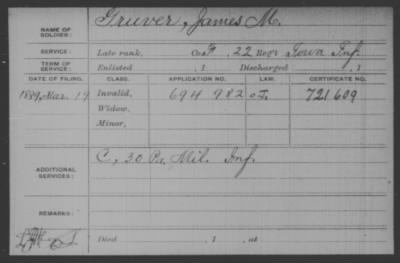 NAME OF SOLDIER: Gruver, James M.
SERVICE: Late rank, Co. F, 22 Reg't Iowa Inf.
TERM OF SERVICE: Enlisted , 1 Discharged , 1
DATE OF FILING. CLASS. APPLICATION NO. LAW. CERTIFICATE NO.
1889, Mar. 19 Invalid, 694 982 721 609
Widow,
Minor,
ADDITIONAL SERVICES: C, 30 Pa. Mil. Inf.
REMARKS:
Died , 1 , at